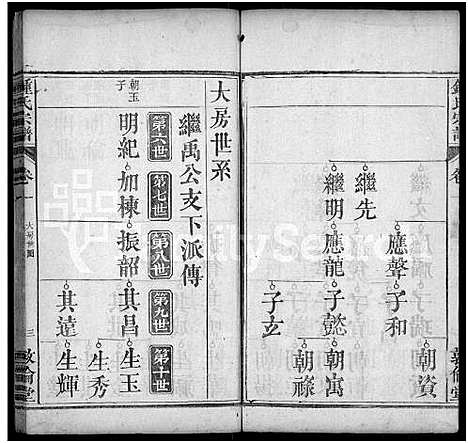 鍾氏宗譜
卷一
繼先
應聲 子和 朝資
繼明 應龍 子懿 朝寓
朝祿
子玄
敦倫堂
大房世系
繼禹公支下派傳
第六世 第七世 第八世 第九世 第十世
朝玉子
明紀 加棟 振韶 其昌 生玉
生秀
其遠 生輝
鍾氏宗譜
卷一
大房世圖
三
敦倫堂